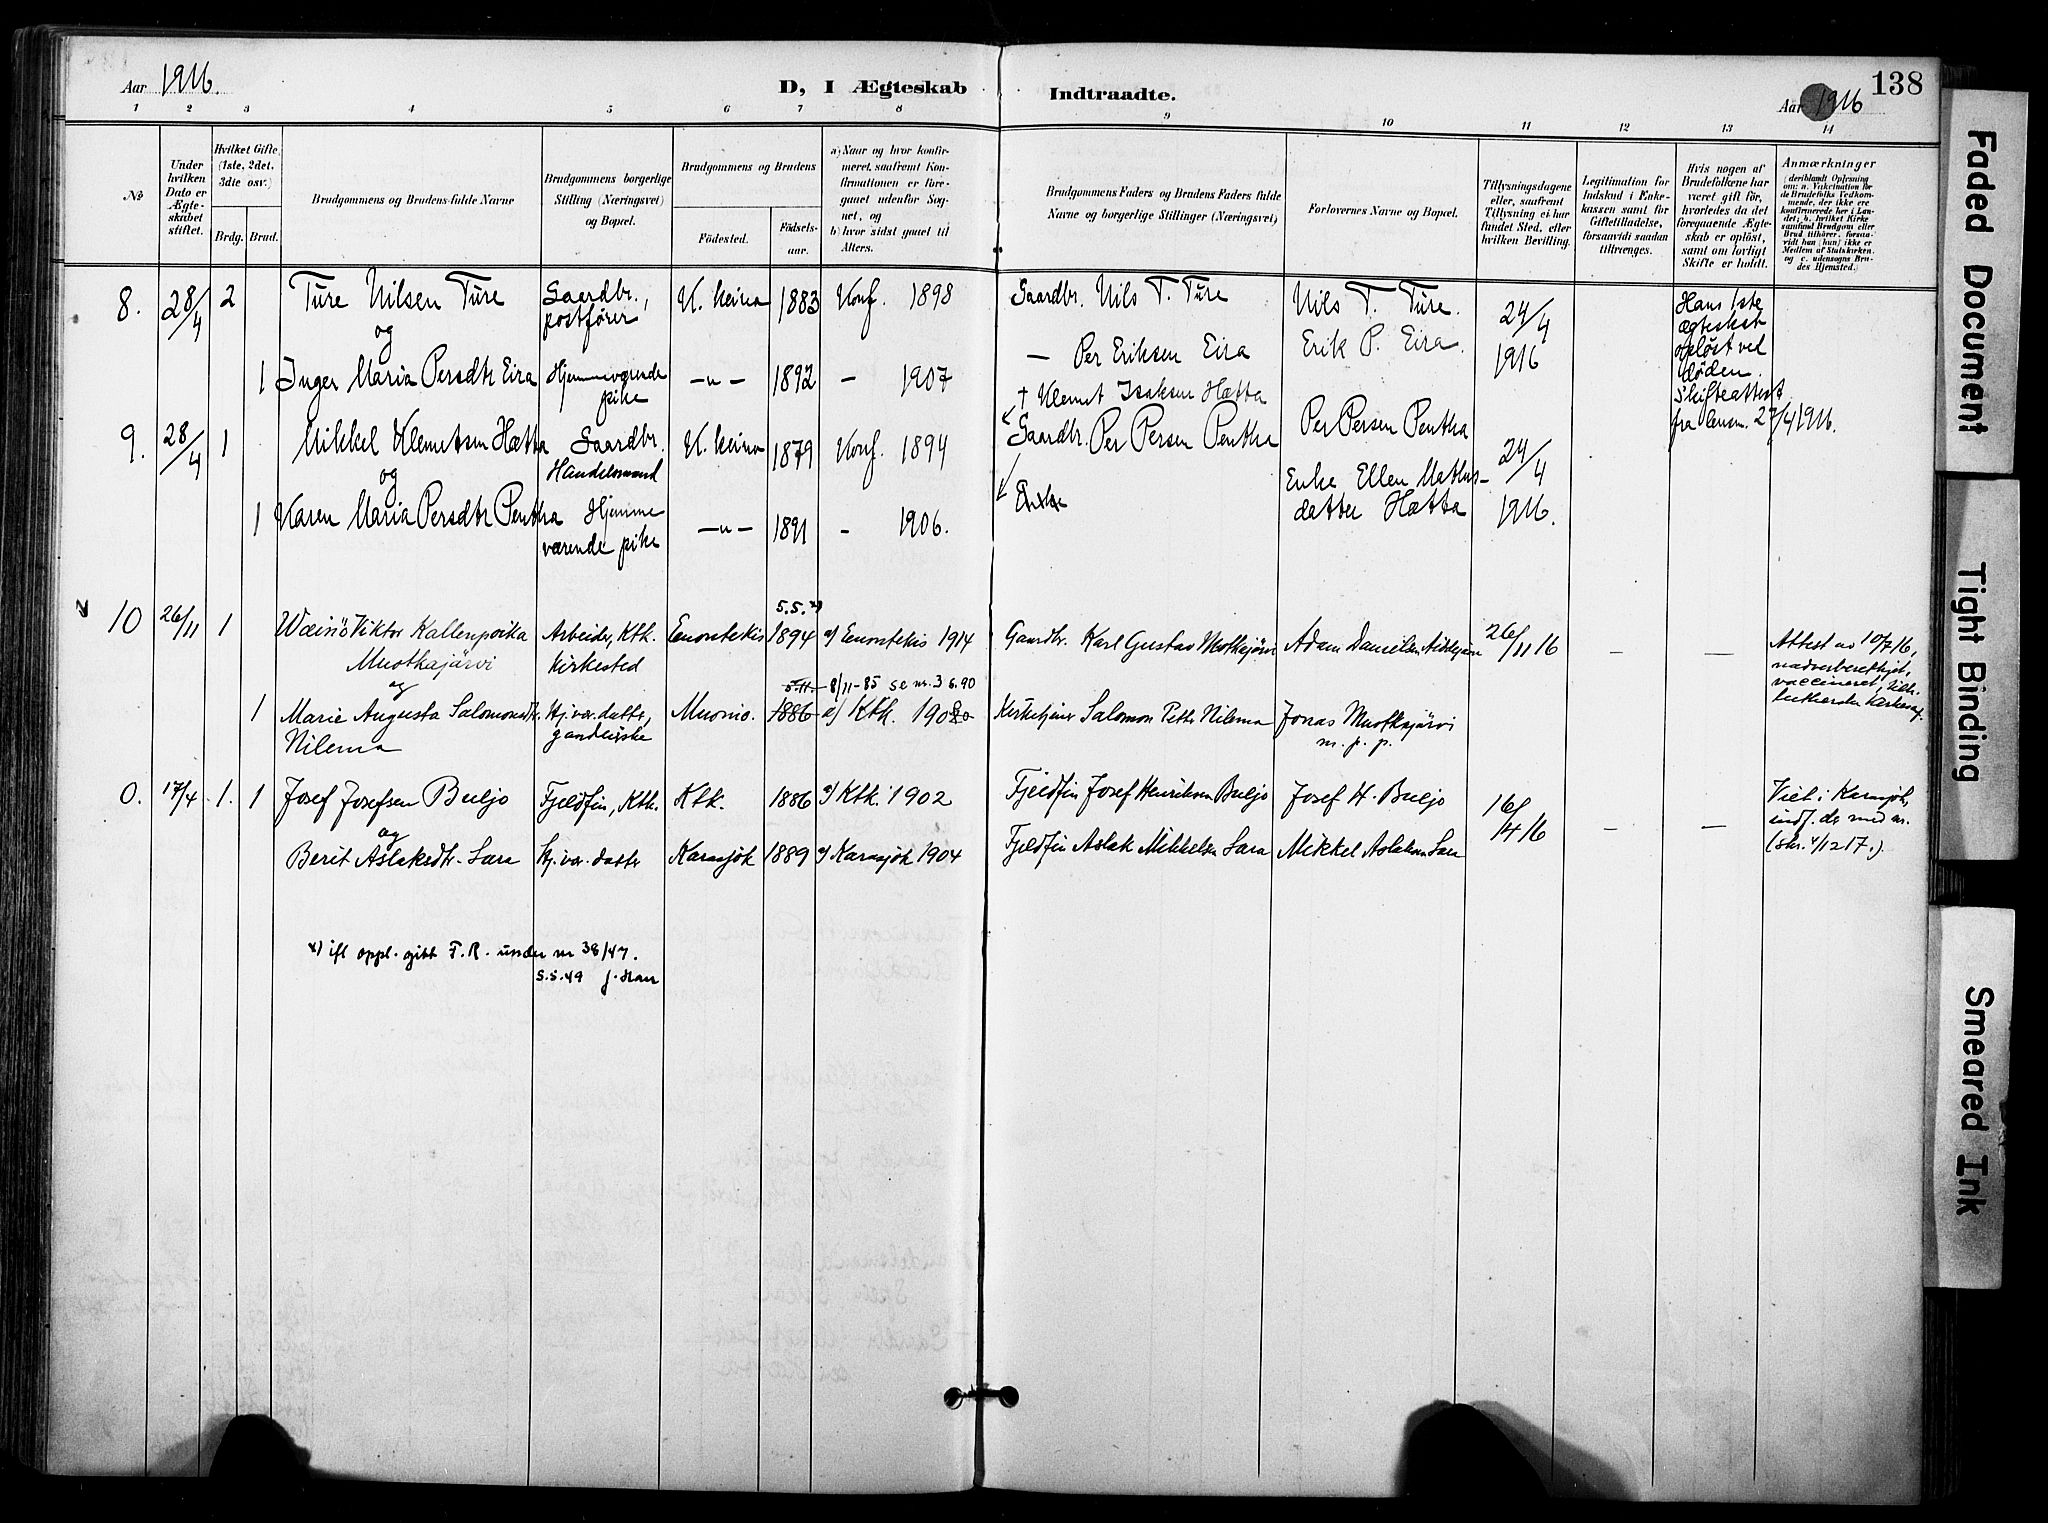 Aar 1916.
D, I Ægteskab Indtraadte.
138
Aar 1916
1 2 3 4 5 6 7 8 9 10 11 12 13 14
No
Under hvilken Dato er Ægteskabet stiftet.
Hvilket Gifte, (1ste, 2det, 3die osv.)
Brdg. Brud.
Brudgommens og Brudens fulde Navne
Brudgommens borgerlige Stilling (Næringsvei) og Bopæl.
Brudgommens og Brudens
Födested.
Födselsaar.
a) Naar og hvor konfirmeret, saafremt Konfirmationen er foregaaet udenfor Sognet, og
b) hvor sidst gaaet til Alters.
Brudgommens Faders og Brudens Faders fulde Navne og borgerlige Stillinger (Næringsvei)
Forlovernes Navne og Bopæl.
Tillysningsdagene eller, saafremt Tillysning ei har fundet Sted, efter hvilken Bevilling.
Legitimation for Indskud i Enkekassen samt for Giftetilladelse, forsaavidt saadan tiltrænges.
Hvis nogen af Brudefolkene har været gift för, hvorledes da det foregaaende Ægteskab er oplöst, samt om lovligt Skifte er holdt.
Anmærkninger (deriblandt Oplysning om: a. Vakcination for de Brudefolks Vedkommende, der ikke ere konfirmerede her i Landet; b. hvilket Kirkesamfund Brudgom eller Brud tilhörer, forsaavidt han (hun) ikke er Medlem af Statskirken, og c. udensogns Brudes Hjemsted.)
8. 28/4 2 Ture Nilsen Ture Gaardbr., postförer K.keino 1883 Konf. 1898 Gaardbr. Nils T. Ture Nils T. Ture. 24/4 1916 Hans 1ste ægteskab oplöst ved döden. Skifteattest fra lensm. 27/4 1916.
og
1 Inger Maria Persdtr Eira Hjemmeværende pike —"— 1892 - 1907 — Per Eriksen Eira Erik P. Eira.
† Klemet Isaksen Hætta
9. 28/4 1 Mikkel Klemetsen Hætta Gaardbr. Handelsmand K.keino 1879 Konf. 1894 Gaardbr. Per Persen Pentha Per Persen Pentha 24/4 1916.
og
Enke Enke Ellen Mathisdatter Hætta
1 Karen Maria Persdtr Pentha Hjemmeværende pike —"— 1891 - 1906.
5.5. x)
10 26/11 1 Wæinö Viktor Kallenpoika Muotkajärvi Arbeider, Ktk. kirkested Enontekis 1894 a) Enontekis 1914 Gaardbr. Karl Gustav Muotkajärvi 26/11 16 — — Attest av 10/7 16,
og
5.11. 8/11-85 se nr. 3 6.90
1 Marie Augusta Salomonsdtr. Nilema Hj.vær. datter, Muonio. 1886 a) Ktk. Kirketjener Salomon Petter Nilema Jonas Muotkajärvi
m. p. p.
0. 17/4 1. 1 Josef Josefsen Buljo Fjeldfin, Ktk. Ktk. 1886 a) Ktk. 1902 Fjeldfin Josef Henriksen Buljo Josef H. Buljo 16/4 16 — — Viet i Karasjok, indf. der med nr.
(skr. 4/12 17.)
og
Berit Aslaksdtr. Sara Hj.vær. datter Karasjok 1889 a) Karasjok 1904 Fjeldfin Aslak Mikkelsen Sara Mikkel Aslaksen Sara
x) ifl oppl. gitt F.R. under nr 38/47.
5.5.49
Faded Document
Tight Binding
Smeared Ink